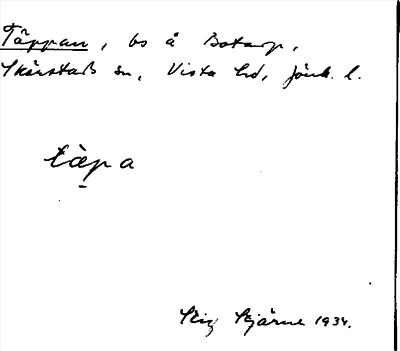 Täppan, bs å Botarp,
Skärstads sn, Vista hd, Jönk. l.
tàpa
Stig Stjärne 1934.